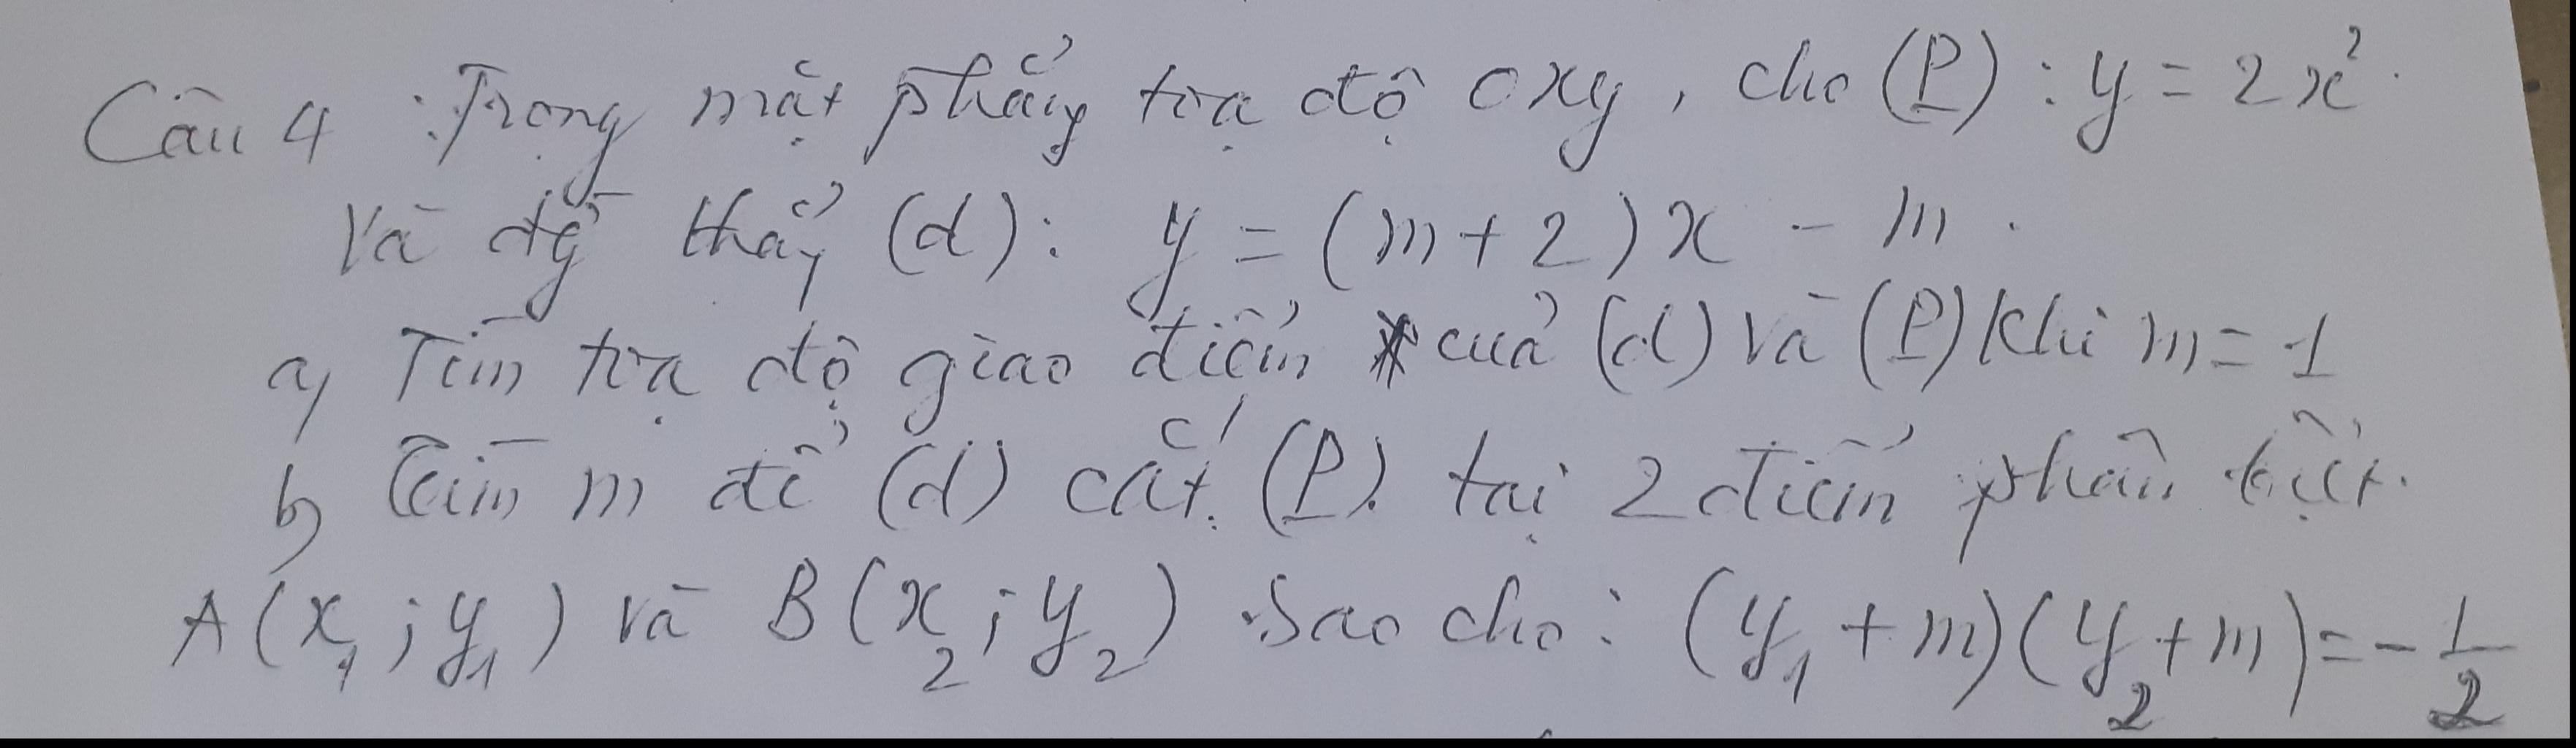 Câu 4 : Trong mặt phẳng tọa độ oxy, cho (P) : y = 2x².
Và đg thẳg (d): y = (m + 2)x - m.
a, Tìm tọa độ giao điểm của (d) và (P) khi m = 1
b, Tìm m để (d) cắt (P) tại 2 điểm phân biệt.
A(x₁; y₁) và B(x₂; y₂) sao cho: (y₁ + m)(y₂ + m) = - 1/2